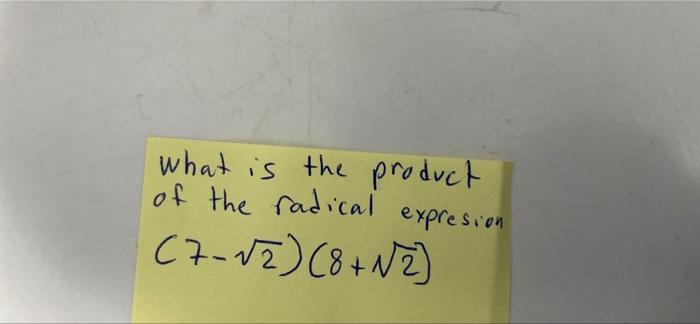 what is the product
of the radical expresion
(7-√2)(8+√2)